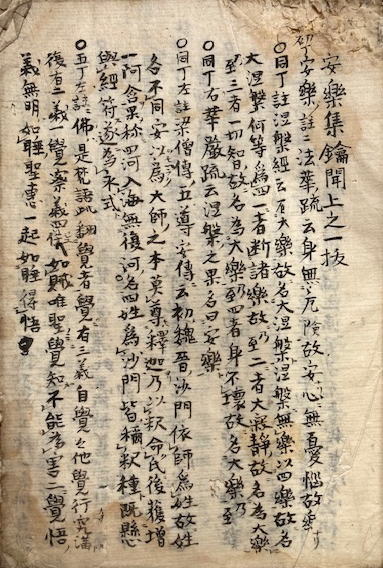 安樂集鑰聞上之一抜
初丁安樂註法華疏云身無危險故安心無憂惱故樂
〇同丁註涅槃經云有大樂故名大涅槃涅槃無樂以四樂故名
大涅槃何等為四一者断諸樂故乃至二者大寂静故名為大樂
乃至三者一切智故名為大樂乃至四者身不壊故名大樂乃至
〇同丁右華嚴疏云涅槃之果名曰安樂
〇同丁左註梁僧傳五道安傳云初魏晉沙門依師為姓故姓
各不同安以為大師之本莫尊釋迦乃以釈命氏後獲増
一阿含果称四河入海無復河名四姓為沙門皆稱釈種既懸
與經符遂為永式
〇五丁左註佛是梵語此翻覺者覺有三義自覺覺他覺行窮滿
復有二義一覺察義四住如賊唯聖覺知不能為害二覺悟
義無明如睡聖惠一起如睡得悟